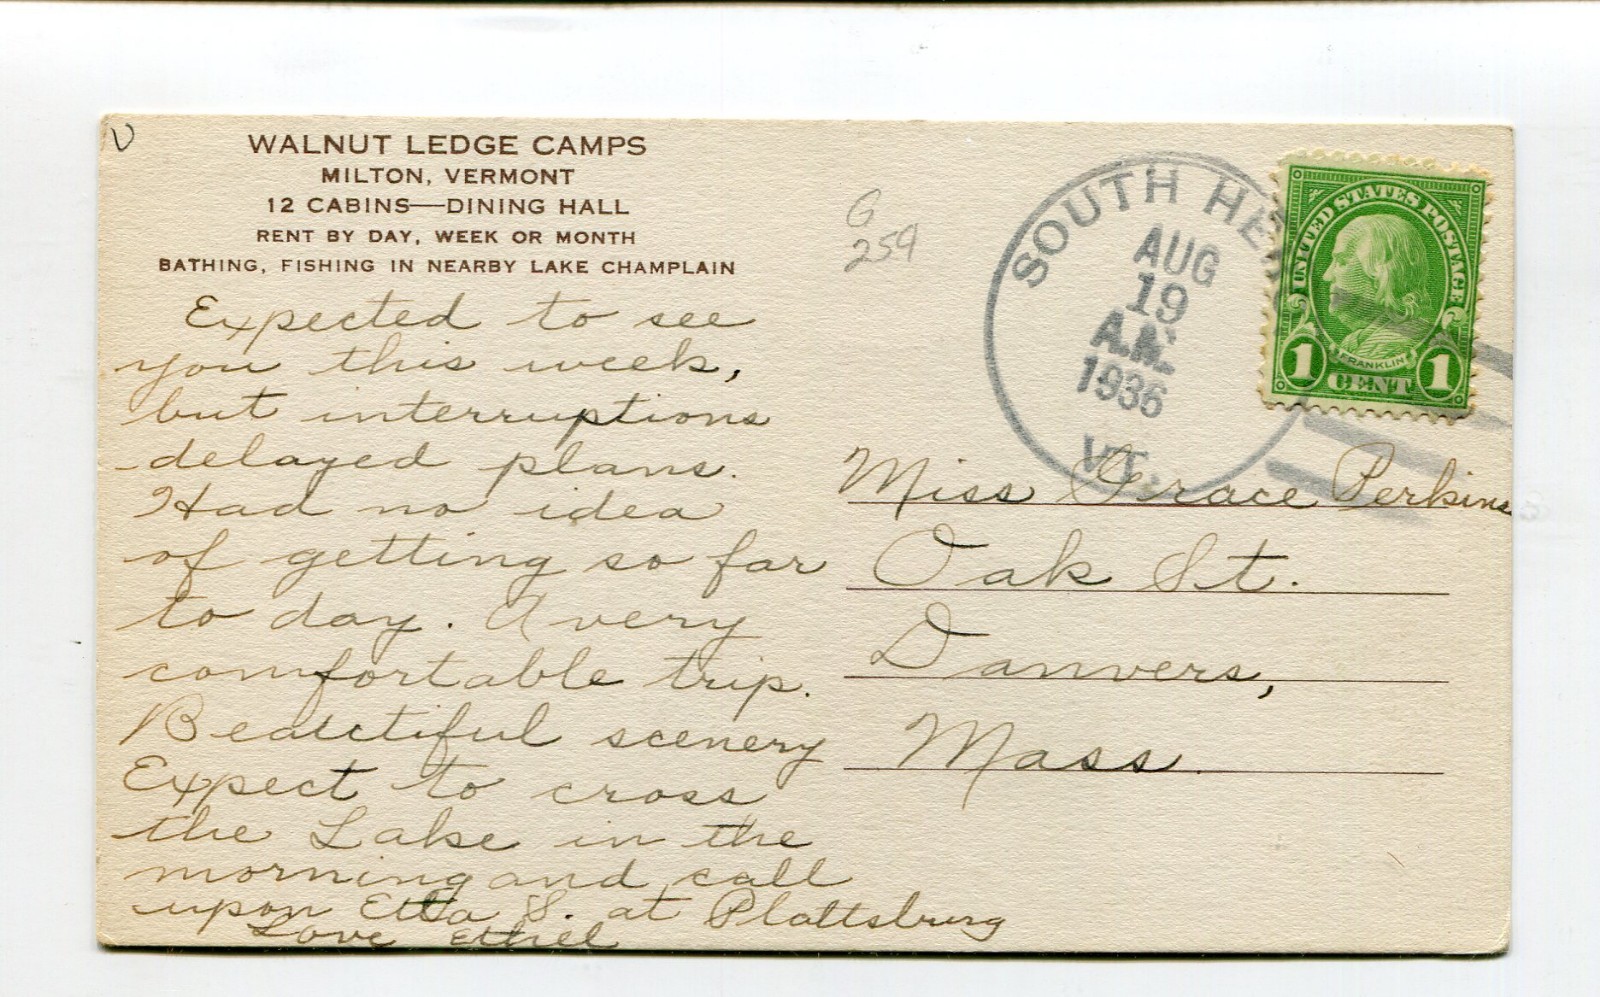 WALNUT LEDGE CAMPS
MILTON, VERMONT
12 CABINS—DINING HALL
RENT BY DAY, WEEK OR MONTH
BATHING, FISHING IN NEARBY LAKE CHAMPLAIN
Expected to see
you this week,
but interruptions
delayed plans.
Had no idea
of getting so far
to day. A very
comfortable trip.
Beautiful scenery
Expect to cross
the Lake in the
morning and call
upon Etta S. at Plattsburg
Love Ethel
G
259
SOUTH HE
AUG
19
A.M.
1936
VT.
UNITED STATES POSTAGE
FRANKLIN
1 CENT 1
Miss Grace Perkins
Oak St.
Danvers,
Mass.